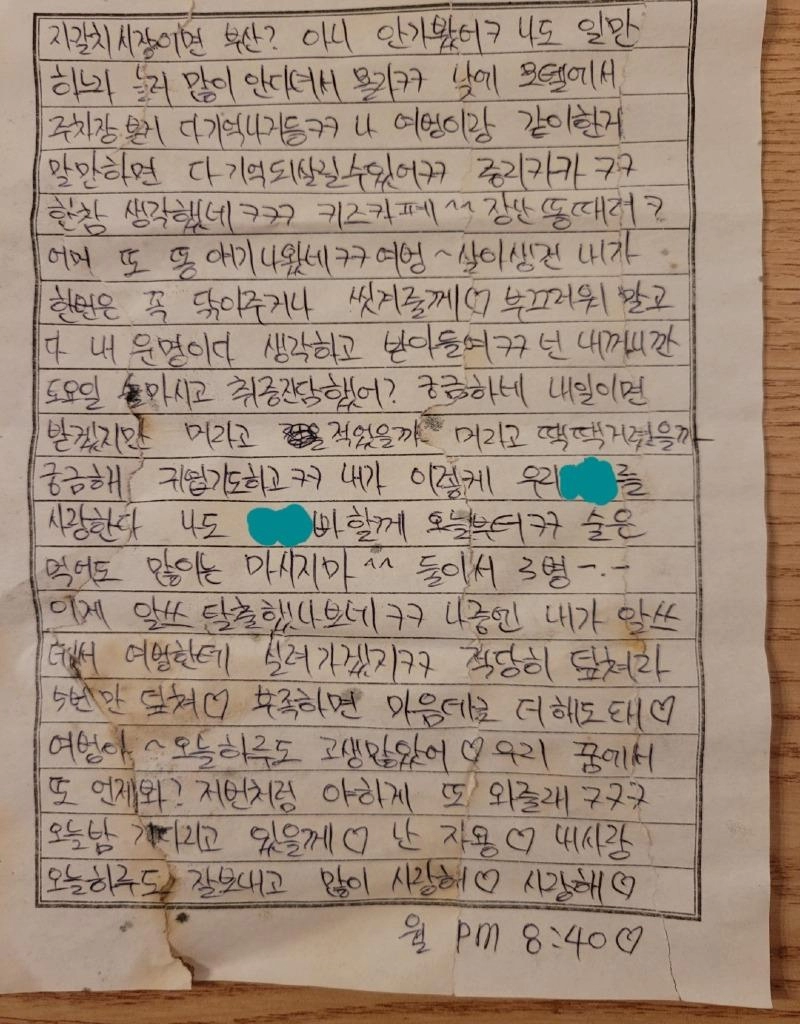 자갈치시장이면 부산? 아니 안가봤어ㅋ 나도 일만
하느라 놀러 많이 안다녀서 몰라ㅋㅋ 낮에 모텔에서
주차장 본거 다기억나거든ㅋㅋ 나 여벙이랑 같이한거
말만하면 다 기억되살릴수있어ㅋㅋ 종리카카 ㅋㅋ
한참 생각했네 ㅋㅋㅋ 키즈카페^^ 장난 똥때려?
어머 또 똥 얘기나왔네ㅋㅋ여벙~살아생전 내가
한번은 꼭 닦아주거나 씻겨줄께♡ 부끄러워 말고
다 내 운명이다 생각하고 받아들여ㅋㅋ 넌 내꺼니깐
토요일 술마시고 취중진담했어? 궁금하네 내일이면
받겠지만 머라고 적었을까 머라고 떽떽거렸을까
궁금해 귀엽기도하고ㅋㅋ 내가 이렇게 우리 를
사랑한다 나도 바 할께 오늘부터ㅋㅋ 술은
먹어도 많이는 마시지마^^ 둘이서 3병 -.-
이제 알쓰 탈출했나보네ㅋㅋ 나중엔 내가 알쓰
돼서 여벙한테 실려가겠지ㅋㅋ 적당히 덮쳐라
5번만 덮쳐♡ 부족하면 마음데로 더해도돼♡
여벙아~오늘하루도 고생많았어♡ 우리 꿈에서
또 언제와? 저번처럼 야하게 또 와줄래 ㅋㅋㅋ
오늘밤 기다리고 있을께♡ 난 자용♡ 내사랑
오늘하루도 잘보내고 많이 사랑해♡ 사랑해♡
월 PM 8:40♡